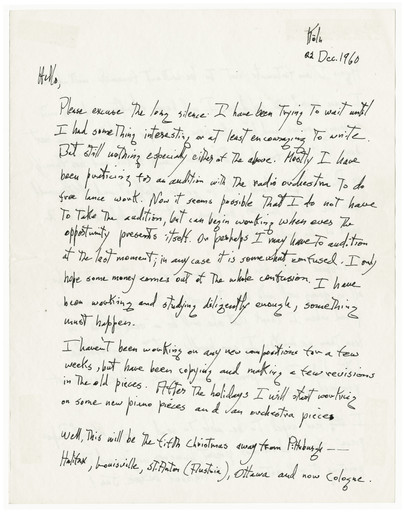 Köln
22 Dec. 1960
Hello,
Please excuse the long silence. I have been trying to wait until
I had something interesting or at least encouraging to write.
But still nothing especially either of the above. Mostly I have
been practicing for an audition with the radio orchestra to do
free lance work. Now it seems possible that I do not have
to take the audition, but can begin working when ever the
opportunity presents itself. Or perhaps I may have to audition
at the last moment; in any case it is somewhat confused. I only
hope some money comes out of the whole confusion. I have
been working and studying diligently enough, something
must happen.
I haven't been working on any new compositions for a few
weeks, but have been copying and making a few revisions
in the old pieces. After the holidays I will start working
on some new piano pieces and an orchestra piece.
Well, this will be the fifth Christmas away from Pittsburgh —
Halifax, Louisville, St. Anton (Austria), Ottawa and now Cologne.